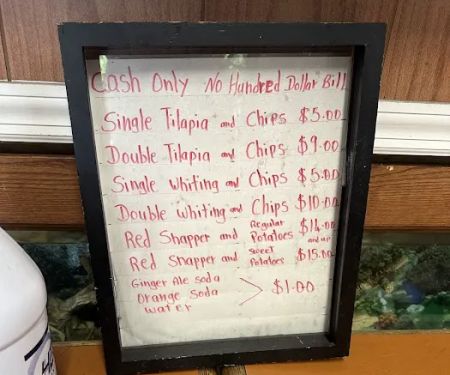 Cash Only No Hundred Dollar Bill
Single Tilapia and Chips $5.00
Double Tilapia and Chips $9.00
Single Whiting and Chips $5.00
Double Whiting and Chips $10.00
Red Snapper and Regular Potatoes $14.00 and up
Red Snapper and Sweet Potatoes $15.00
Ginger Ale Soda
Orange Soda > $1.00
Water